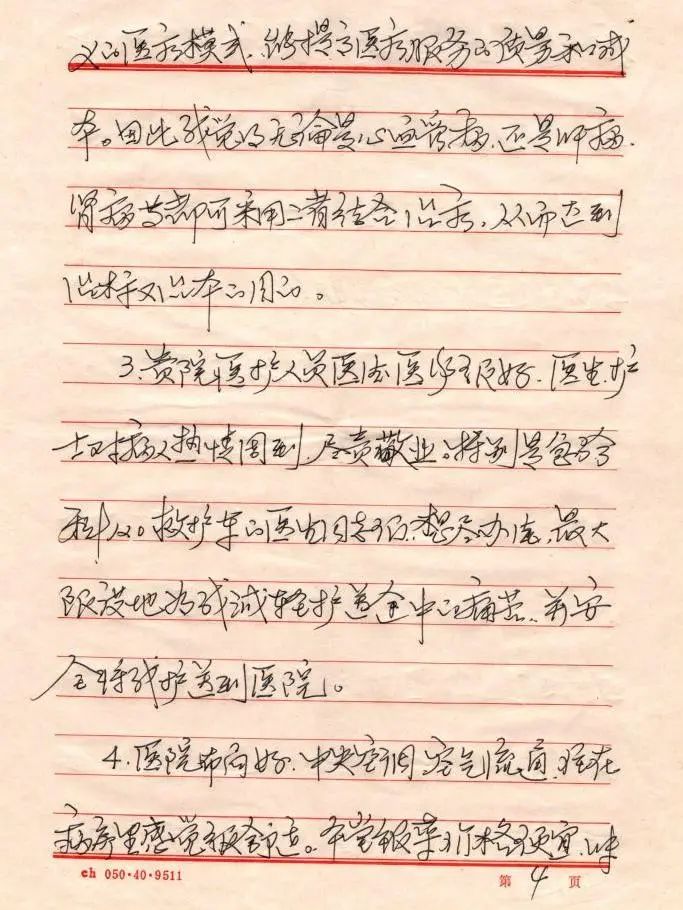 义的医疗模式，能提高医疗服务的质量和减
本。因此我觉得无论是心血管病，还是肺病，
肾病等都可采用二者结合治疗，从而达到
治标又治本的目的。
3、贵院医护人员医德医风很好，医生、护
士对病人热情周到，尽责敬业。特别是急诊
科120救护车的医生同志们，想尽办法，最大
限度地为我减轻护送途中的痛苦，并安
全将我护送到医院。
4、医院布局好，中央空调空气流通，住在
病房里感觉很舒适。食堂饭菜价格便宜，味
ch 050·40·9511
第 4 页